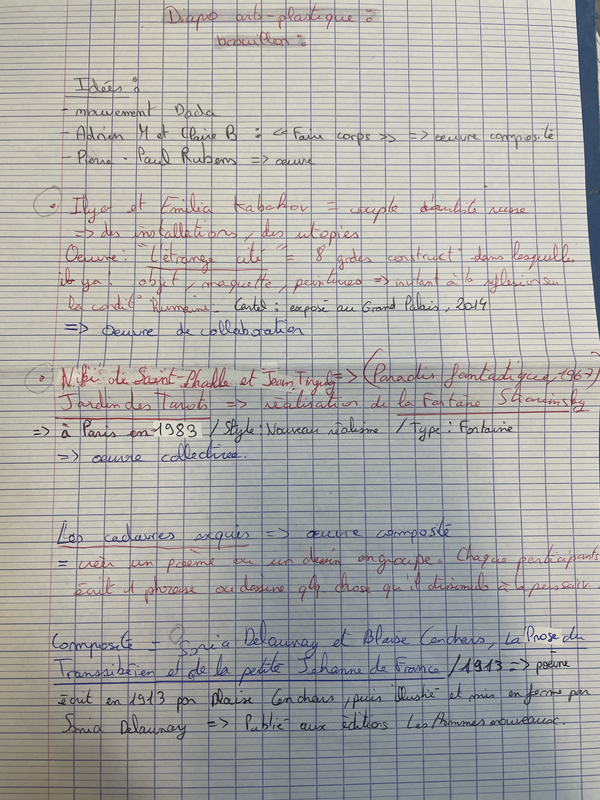 Diapo arts-plastique :
brouillon :
Idées :
- mouvement Dada
- Adrien M et Claire B : << Faire corps >> => œuvre composité
- Pierre - Paul Rubens => œuvre
• Ilya et Emilia Kabakov = couple d'artiste russe
=> des installations, des utopies
Oeuvre : "L'étrange cité" = 8 grdes construct° dans lesquelles
il y a : objet, maquette, peintures => invitant à la réflexion sur
la condit° humaine. Cartel : exposé au Grand Palais, 2014
=> Oeuvre de collaboration
• Niki de Saint Phalle et Jean Tinguely => (Paradis fantastique, 1967)
Jardin des Tarots => réalisation de la Fontaine Stravinsky
=> à Paris en 1983 / Style : Nouveau réalisme / Type : Fontaine
=> œuvre collective.
Les cadavres exquis => œuvre composité
= créer un poème ou un dessin en groupe. Chaque participants
écrit 1 phrase ou dessine qlq chose qu'il dissimule à la
Composité = Sonia Delaunay et Blaise Cendrars, La Prose du
Transsibérien et de la petite Jehanne de France / 1913 => poème
écrit en 1913 par Blaise Cendrars, puis illustré et mis en forme par
Sonia Delaunay => Publié aux éditions Les Hommes nouveaux.